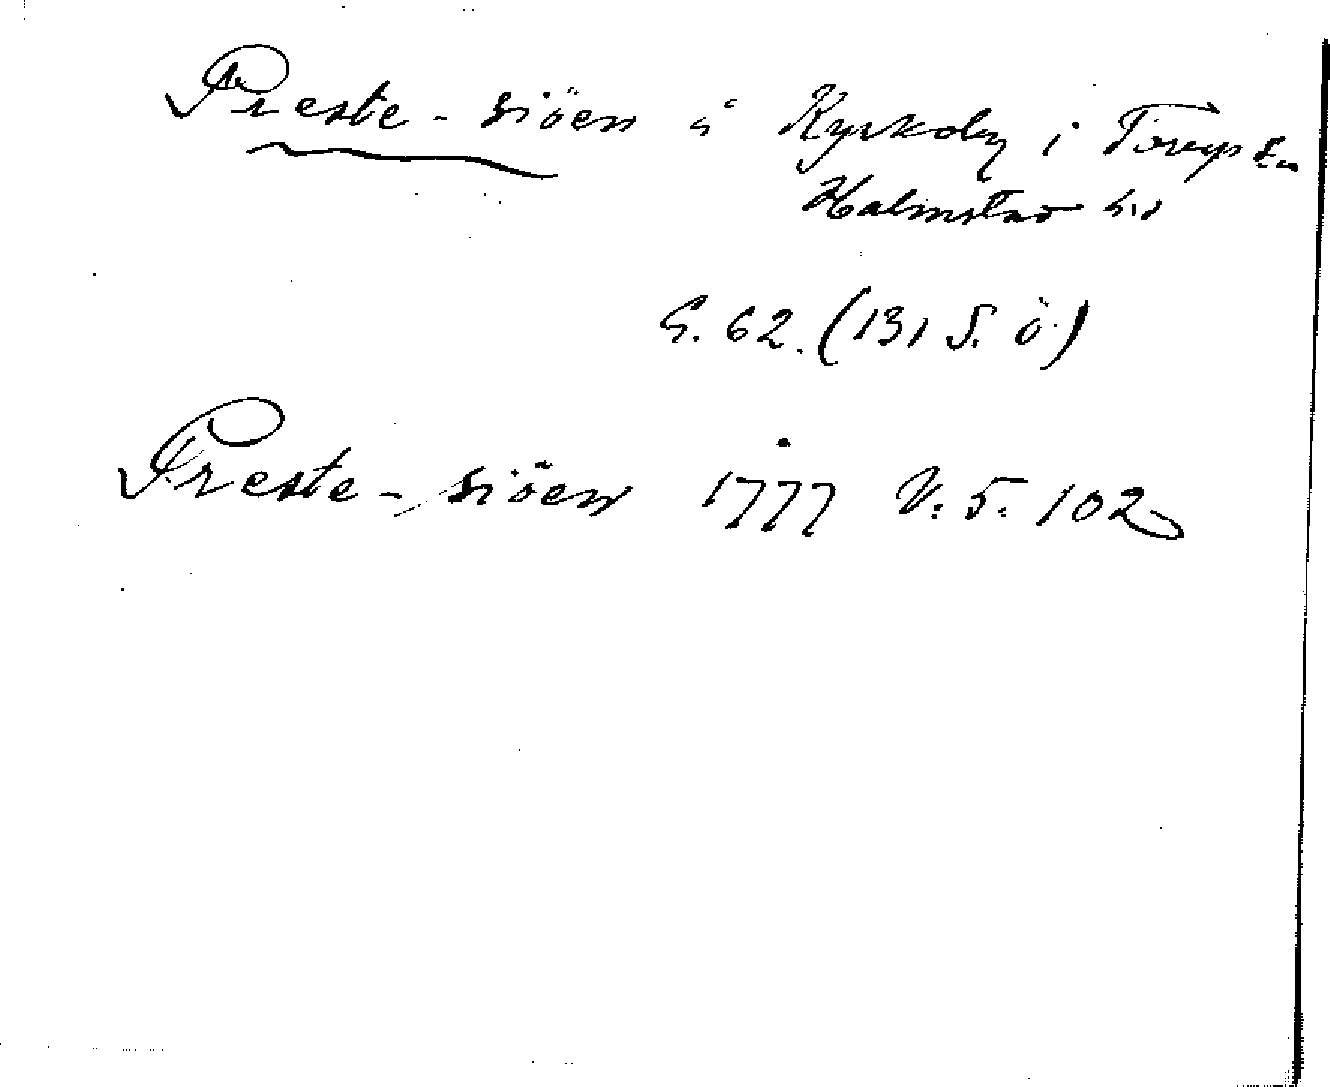 Preste-siöen i Kyrkoby i Torup sn
Halmstad hd
G. 62. (131 S. ö.)
Preste-siöen 1777 V: 5: 102